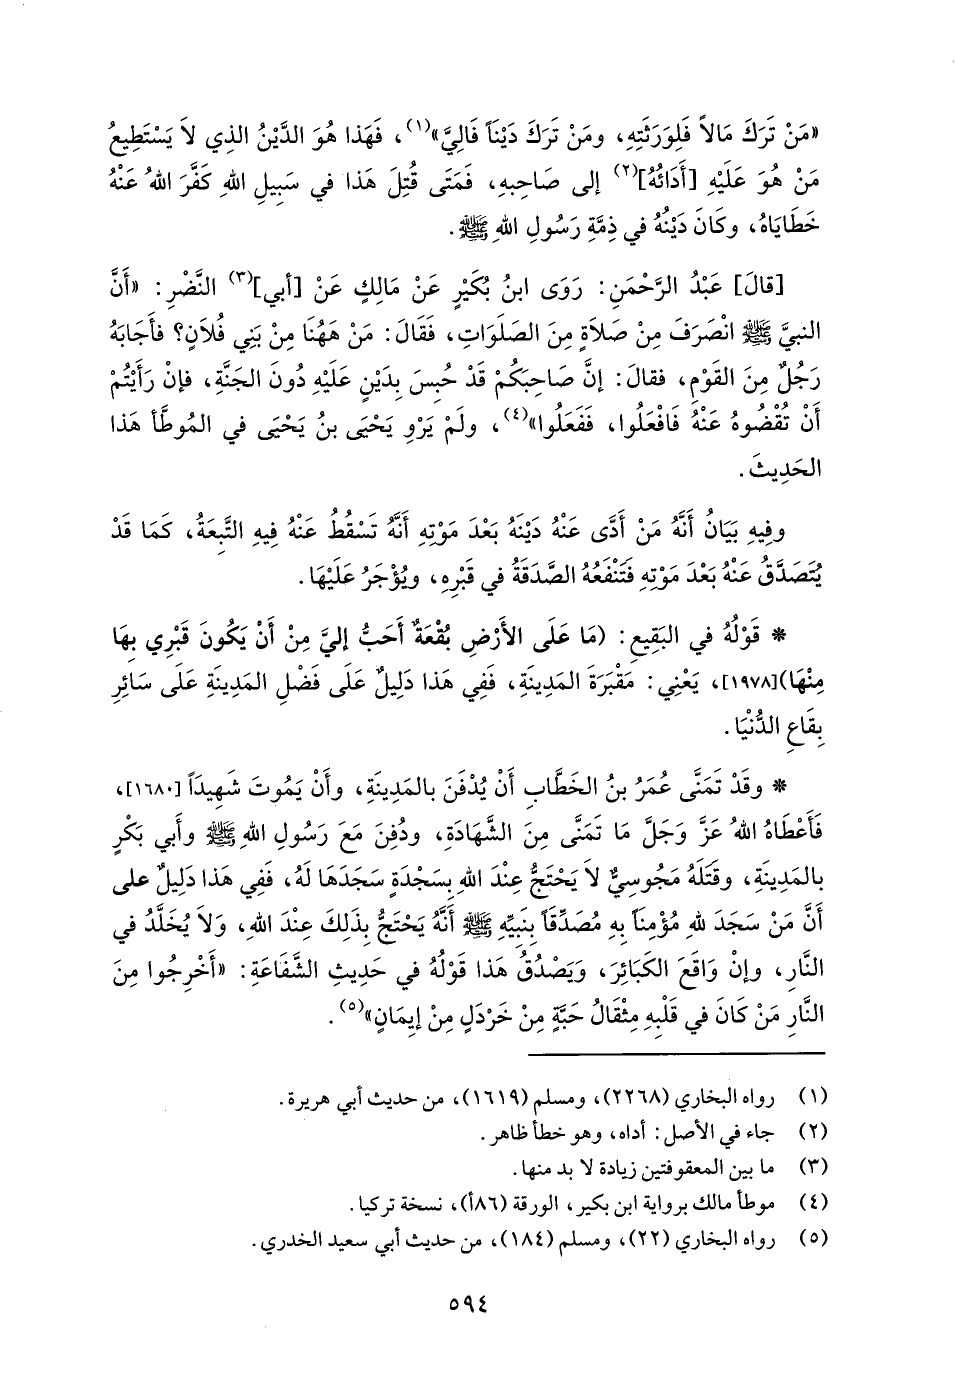 «مَنْ تَرَكَ مَالاً فَلِوَرَثَتِهِ، ومَنْ تَرَكَ دَيْنَاً فَالِيَّ»(١)، فَهَذا هُوَ الدَّيْنُ الذِي لاَ يَسْتَطِيعُ
مَنْ هُوَ عَلَيْهِ [أَدَائُهُ](٢) إلى صَاحِبهِ، فَمَتَى قُتِلَ هَذا في سَبِيلِ اللهِ كَفَّرَ اللهُ عَنْهُ
خَطَايَاهُ، وكَانَ دَيْنُهُ في ذِمَّةِ رَسُولِ اللهِ ﷺ.
[قالَ] عَبْدُ الرَّحْمَنِ: رَوَى ابنُ بُكَيْرٍ عَنْ مَالِكٍ عَنْ [أبي](٣) النَّضْرِ: «أَنَّ
النبيَّ ﷺ انْصَرَفَ مِنْ صَلاَةٍ مِنَ الصَلَوَاتِ، فَقَالَ: مَنْ هَهُنَا مِنْ بَنِي فُلاَنٍ؟ فأَجَابَهُ
رَجُلٌ مِنَ القَوْمِ، فقالَ: إنَّ صَاحِبَكُمْ قَدْ حُبِسَ بِدَيْنٍ عَلَيْهِ دُونَ الجَنَّةِ، فإنْ رَأَيْتُمْ
أَنْ تُقْضُوهُ عَنْهُ فَافْعَلُوا، فَفَعَلُوا»(٤)، ولَمْ يَرْوِ يَحْيَى بنُ يَحْيَى في المُوطَّأ هَذا
الحَدِيثَ.
وفِيهِ بَيَانُ أَنَّهُ مَنْ أَدَّى عَنْهُ دَيْنَهُ بَعْدَ مَوْتِهِ أَنَّهُ تَسْقُطُ عَنْهُ فِيهِ التَّبِعَةُ، كَمَا قَدْ
يُتَصَدَّقُ عَنْهُ بَعْدَ مَوْتِهِ فَتَنْفَعُهُ الصَّدَقَةُ في قَبْرِهِ، ويُؤْجَرُ عَلَيْهَا.
* قَوْلُهُ في البَقِيعِ: (مَا عَلَى الأَرْضِ بُقْعَةٌ أَحَبُّ إليَّ مِنْ أَنْ يَكُونَ قَبْرِي بِهَا
مِنْهَا)[١٩٧٨]، يَعْنِي: مَقْبَرَةَ المَدِينَةِ، فَفِي هَذا دَلِيلٌ عَلَى فَضْلِ المَدِينَةِ عَلَى سَائِرِ
بِقَاعِ الدُّنْيَا.
* وقَدْ تَمَنَّى عُمَرُ بنُ الخَطَّابِ أَنْ يُدْفَنَ بالمَدِينَةِ، وأَنْ يَمُوتَ شَهِيدَاً [١٦٨٠]،
فَأَعْطَاهُ اللهُ عَزَّ وَجَلَّ مَا تَمَنَّى مِنَ الشَّهَادَةِ، ودُفِنَ مَعَ رَسُولِ اللهِ ﷺ وأَبي بَكْرٍ
بالمَدِينَةِ، وقَتَلَهُ مَجُوسِيٌّ لاَ يَحْتَجُّ عِنْدَ اللهِ بِسَجْدَةٍ سَجَدَهَا لَهُ، فَفِي هَذا دَلِيلٌ على
أَنَّ مَنْ سَجَدَ للهِ مُؤْمِنَاً بهِ مُصَدِّقَاً بِنَبِيِّهِ ﷺ أَنَّهُ يَحْتَجُّ بِذَلِكَ عِنْدَ اللهِ، وَلاَ يُخَلَّدُ في
النَّارِ، وإنْ وَاقَعَ الكَبَائِرَ، وَيَصْدُقُ هَذا قَوْلُهُ في حَدِيثِ الشَّفَاعَةِ: «أَخْرِجُوا مِنَ
النَّارِ مَنْ كَانَ في قَلْبِهِ مِثْقَالُ حَبَّةٍ مِنْ خَرْدَلٍ مِنْ إيمَانٍ»(٥).
(١) رواه البخاري (٢٢٦٨)، ومسلم (١٦١٩)، من حديث أبي هريرة.
(٢) جاء في الأصل: أداه، وهو خطأ ظاهر.
(٣) ما بين المعقوفتين زيادة لا بد منها.
(٤) موطأ مالك برواية ابن بكير، الورقة (٨٦أ)، نسخة تركيا.
(٥) رواه البخاري (٢٢)، ومسلم (١٨٤)، من حديث أبي سعيد الخدري.
٥٩٤